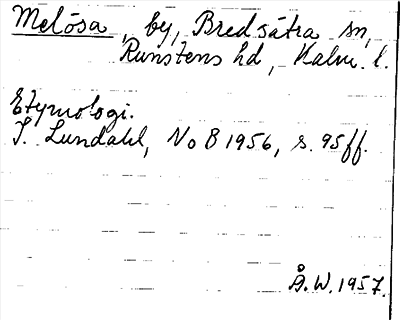 Melösa, by, Bredsätra sn,
Runstens hd, Kalm. l.
Etymologi.
I. Lundahl, NoB 1956, s. 95ff.
Å.W. 1957.